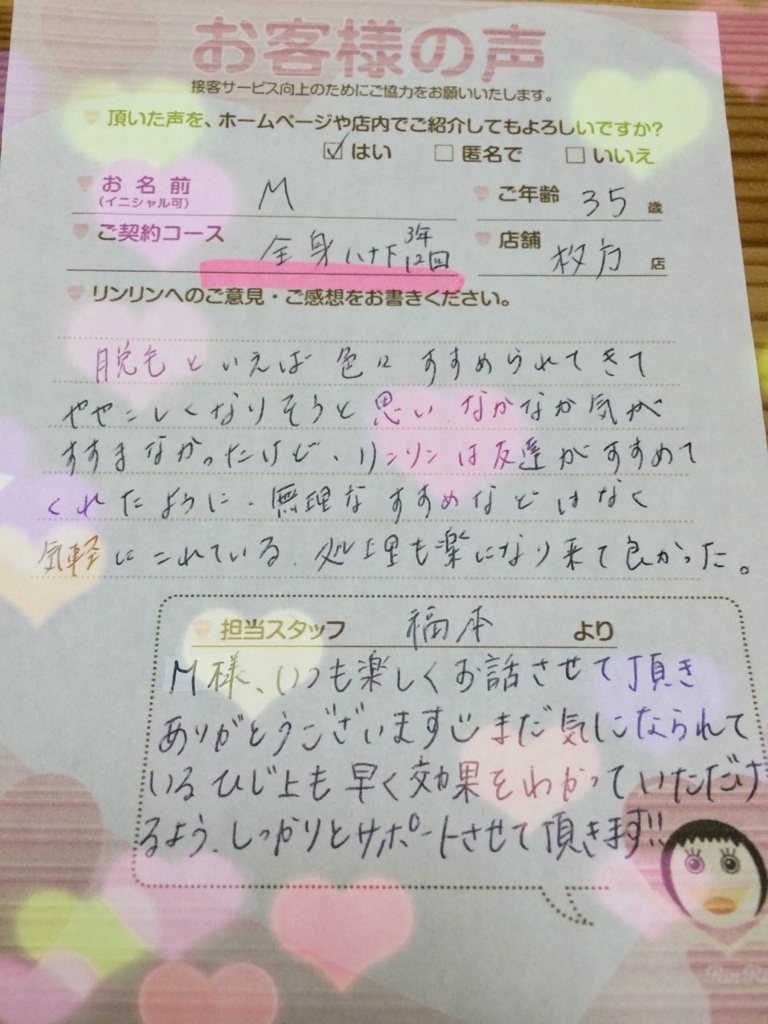 お客様の声
接客サービス向上のためにご協力をお願いいたします。
頂いた声を、ホームページや店内でご紹介してもよろしいですか?
☑はい □匿名で □いいえ
お名前 (イニシャル可) M ご年齢 35 歳
ご契約コース 全身ハナ下 3年12回 店舗 枚方 店
リンリンへのご意見・ご感想をお書きください。
脱毛といえば色々すすめられてきて
ややこしくなりそうと思い、なかなか気が
すすまなかったけど、リンリンは友達がすすめて
くれたように、無理なすすめなどはなく
気軽にこれている。処理も楽になり来て良かった。
担当スタッフ 福本 より
M様、いつも楽しくお話させて頂き
ありがとうございます まだ気になられて
いるひじ上も早く効果をわかっていただけ
るよう、しっかりとサポートさせて頂きます!!